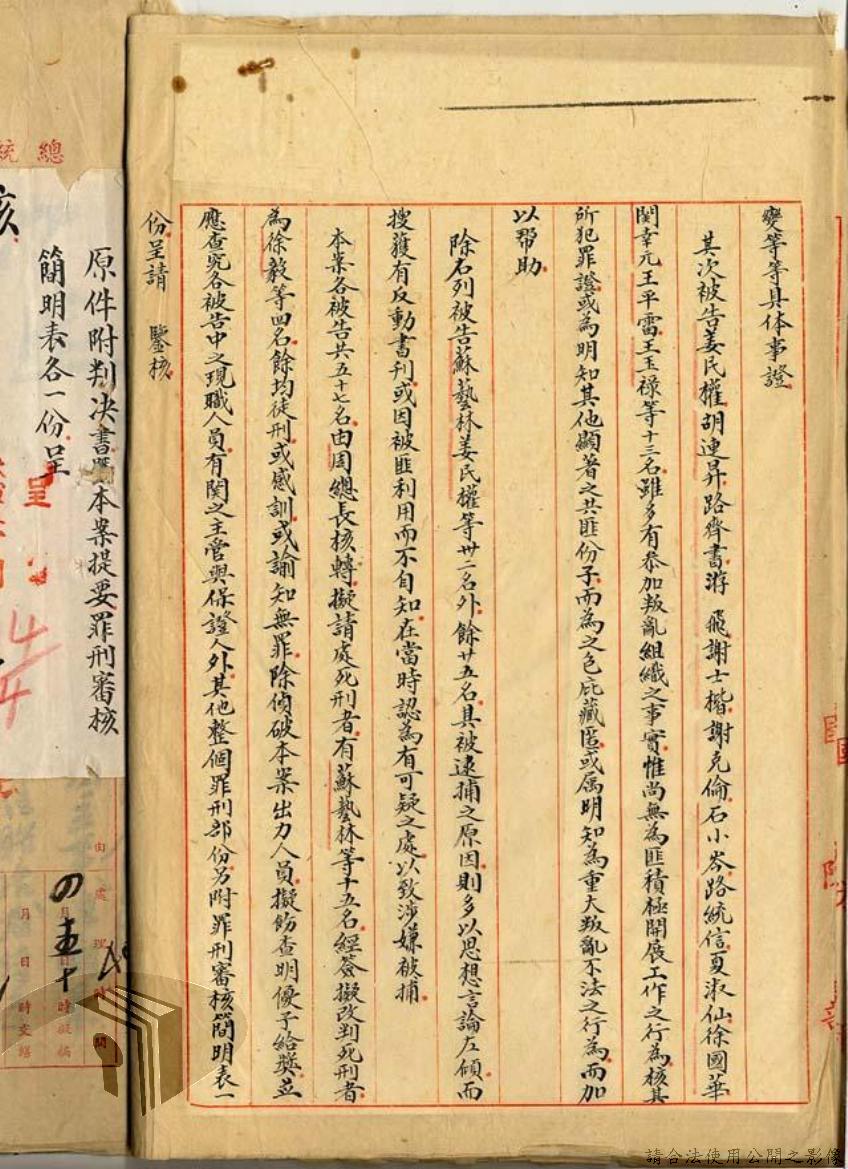 變等等具体事證
其次被告姜民權胡連昇路齊書游飛謝士楷謝克倫石小岑路統信夏淑仙徐國華
関幸元王平雷玉玉祿等十三名雖多有参加叛亂組織之事實惟尚無為匪積極開展工作之行為核其
所犯罪證或為明知其他顯著之共匪份子而為之包庇藏匿或属明知為重大叛亂不法之行為而加
以帮助
除右列被告蘇藝林姜民權等卅二名外餘廿五名具被逮捕之原因則多以思想言論左傾而
搜獲有反動書刊或因被匪利用而不自知在當時認為有可疑之處以致涉嫌被捕
本案各被告共五十七名由周總長核轉擬請處死刑者有蘇藝林等十五名經簽擬改判死刑者
為徐毅等四名餘均徒刑或感訓或諭知無罪除偵破本案出力人員擬飭查明優予給獎並
應查究各被告中之現職人員有関之主管與保證人外其他整個罪刑部份另附罪刑審核簡明表一
份呈請 鑒核
原件附判决書暨本案提要罪刑審核
簡明表各一份呈
呈
核
總統
由處理時間
月日時擬稿
月日時交繕
請合法使用公開之影像